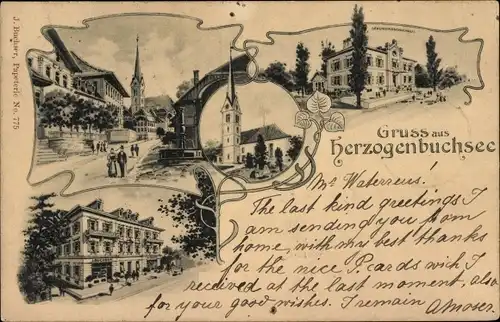 J. Buchser, Papeterie No. 775
Gruss aus
Herzogenbuchsee
Mr Waterreus!
The last kind greetings I
am sending you from
home, with my best thanks
for the nice P. cards wich I
received at the last moment, also
for your good wishes. I remain
A Moser